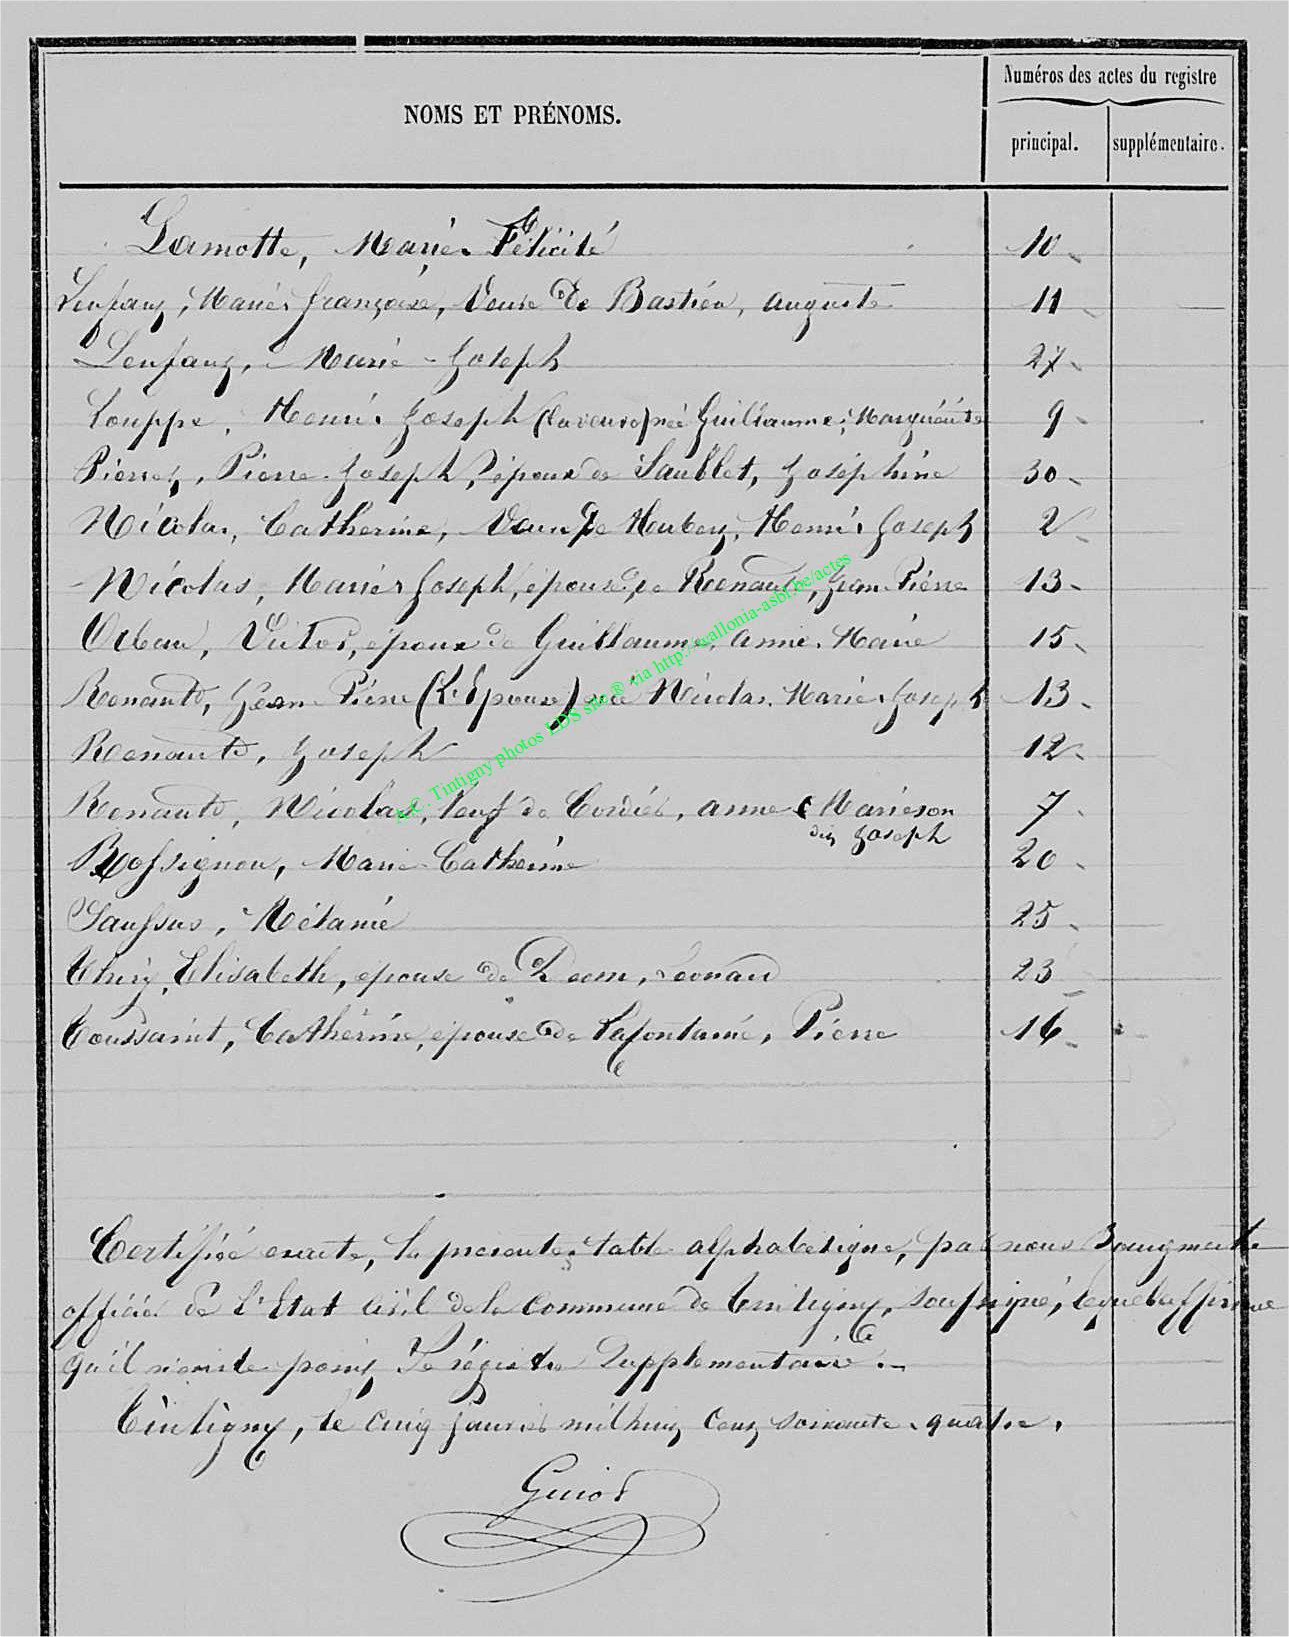 NOMS ET PRÉNOMS.
Numéros des actes du registre
principal.
supplémentaire.
Lamotte, Marie-Félicité 10
Lenfant, Marie-françoise, Veuve de Bastien, auguste 11
Lenfant, Marie-Joseph 27
Louppe, Henri-Joseph (la veuve) née Guillaume, Marguérite 9
Pierret, Pierre-Joseph, époux de Saublet, Joséphine 30
Nicolas, Catherine, Veuve de Henri-Joseph 2
Nicolas, Marie-Joseph, épouse de Renauld, Jean-Pierre 13
Orban, Victor, époux de Guillaume, anne-Marie 15
Renauld, Jean-Pierre (L'Epouse) née Nicolas, Marie-Joseph 13
Renauld, Joseph 12
Renauld, Nicolas, Veuf de Cordier, anne-Marieson 7
dit Joseph
Rossignon, Marie-Catherine 20
Saussus, Mélanie 25
Thiry, Elisabeth, épouse de Dom, Léonard 23
Toussaint, Cathérine, épouse de Lafontaine, Pierre 16
A.C. Tintigny photos LDS site® via http://wallonia-asbl.be/actes
Certifiée exacte, la présente table alphabétique, par nous Bourgmestre
officier de l'Etat Civil de la Commune de Tintigny, soussigné, lequel affirme
qu'il n'existe point de régistre Supplementaire.
Tintigny, le cinq janvier mil huit cent soixante-quatre.
Guiot